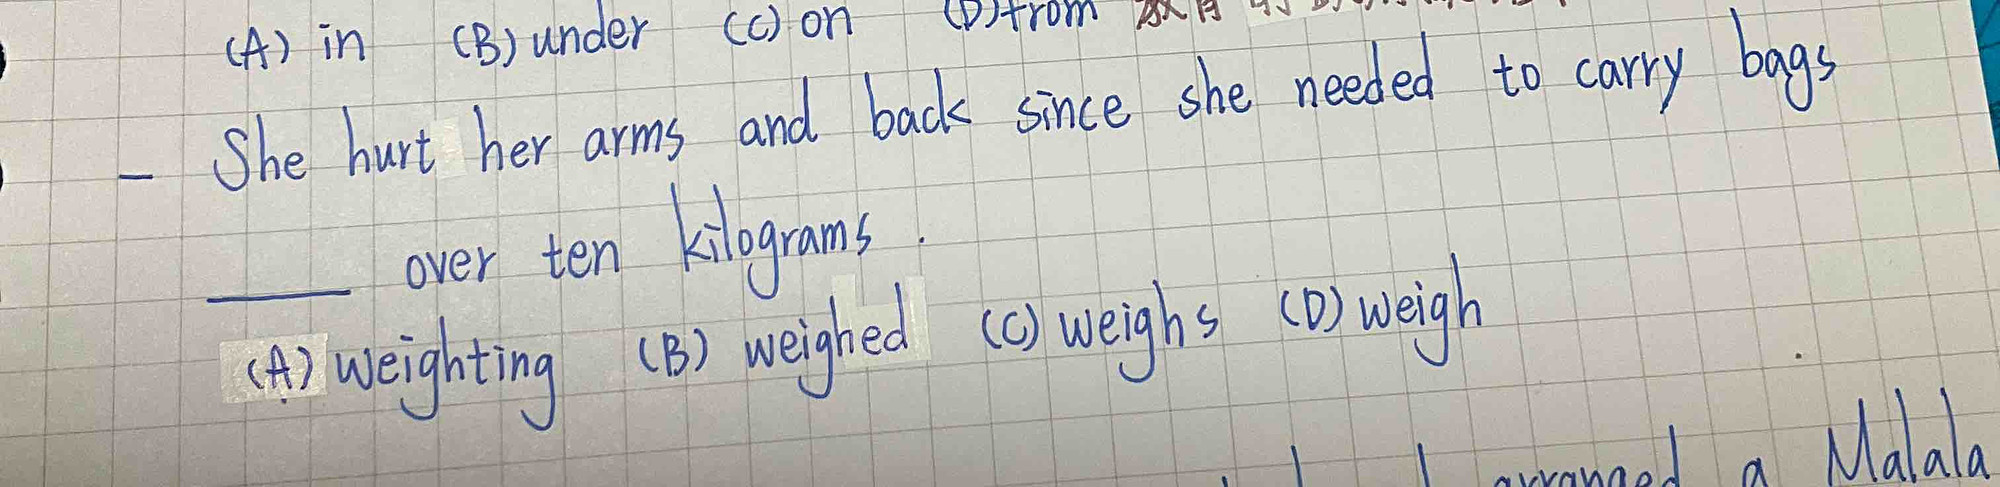 (A) in (B) under (C) on (D) from 教育
- She hurt her arms and back since she needed to carry bags
____ over ten kilograms.
(A) weighting (B) weighed (C) weighs (D) weigh
arranged a Malala